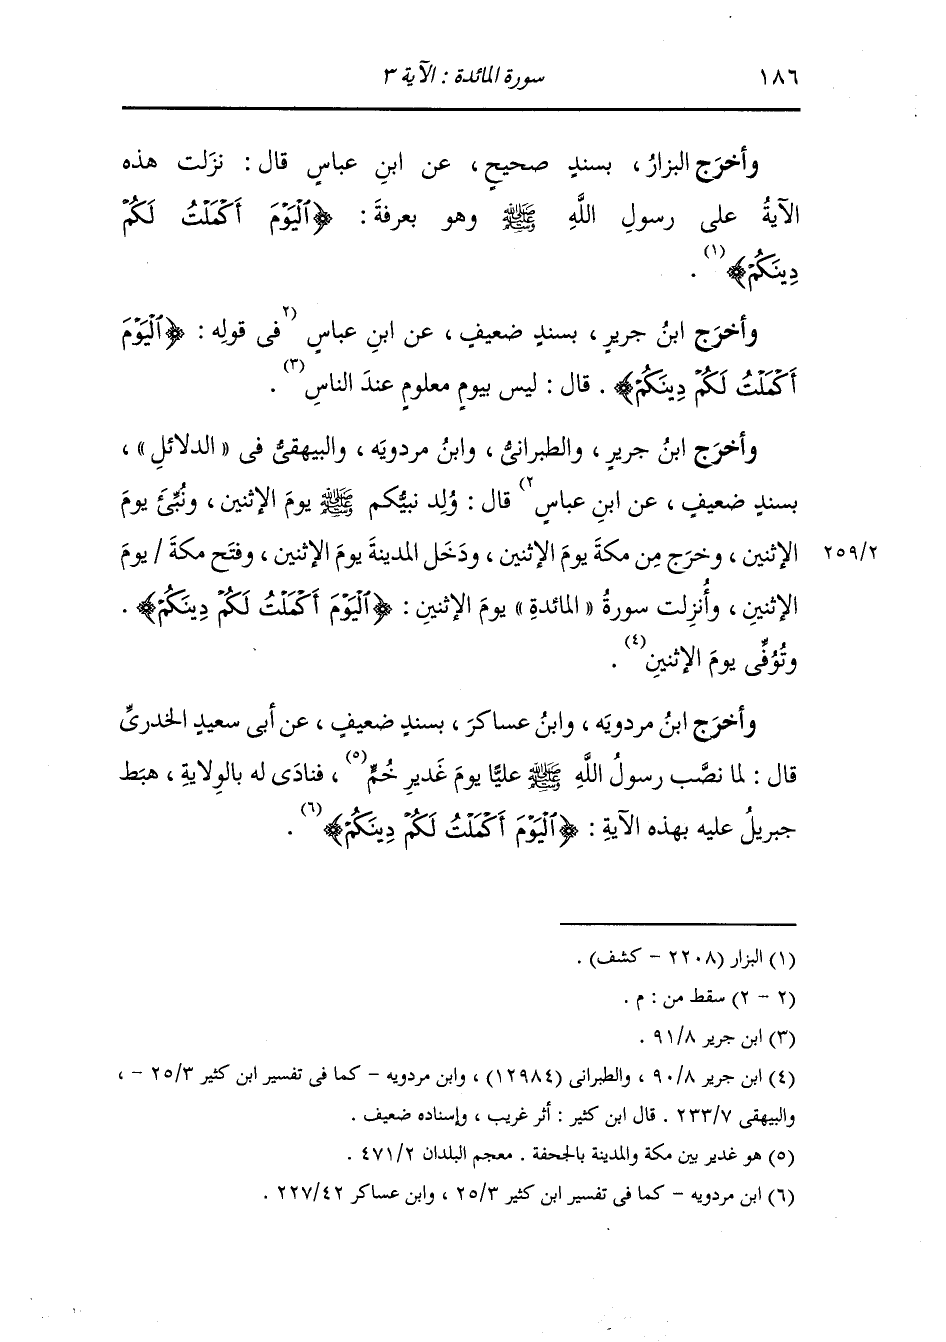 ١٨٦ سورة المائدة : الآية ٣
وأخرَج البزارُ ، بسندٍ صحيحٍ ، عن ابنِ عباسٍ قال : نزَلت هذه
الآيةُ على رسولِ اللَّهِ ﷺ وهو بعرفةَ : ﴿ٱلْيَوْمَ أَكْمَلْتُ لَكُمْ
دِينَكُمْ﴾(١) .
وأخرَج ابنُ جريرٍ ، بسندٍ ضعيفٍ ، عن ابنِ عباسٍ (٢فى قولِه : ﴿ٱلْيَوْمَ
أَكْمَلْتُ لَكُمْ دِينَكُمْ﴾ . قال : ليس بيومٍ معلومٍ عندَ الناسِ(٣) .
وأخرَج ابنُ جريرٍ ، والطبرانىُّ ، وابنُ مردويَه ، والبيهقىُّ فى «الدلائلِ» ،
بسندٍ ضعيفٍ ، عن ابنِ عباسٍ٢) قال : وُلِد نبيُّكم ﷺ يومَ الإثنين ، ونُبِّئَ يومَ
٢٥٩/٢ الإثنين ، وخرَج مِن مكةَ يومَ الإثنين ، ودَخَل المدينةَ يومَ الإثنين ، وفتَح مكةَ / يومَ
الإثنينِ ، وأُنزِلت سورةُ «المائدةِ» يومَ الإثنينِ : ﴿ٱلْيَوْمَ أَكْمَلْتُ لَكُمْ دِينَكُمْ﴾ .
وتُوُفِّى يومَ الإثنينِ(٤) .
وأخرَج ابنُ مردويَه ، وابنُ عساكرَ ، بسندٍ ضعيفٍ ، عن أبى سعيدٍ الخدرىِّ
قال : لما نصَّب رسولُ اللَّهِ ﷺ عليًّا يومَ غَديرِ خُمٍّ(٥) ، فنادَى له بالوِلايةِ ، هبَط
جبريلُ عليه بهذه الآيةِ : ﴿ٱلْيَوْمَ أَكْمَلْتُ لَكُمْ دِينَكُمْ﴾(٦) .
(١) البزار (٢٢٠٨ – كشف) .
(٢ – ٢) سقط من : م .
(٣) ابن جرير ٩١/٨ .
(٤) ابن جرير ٩٠/٨ ، والطبرانى (١٢٩٨٤) ، وابن مردويه – كما فى تفسير ابن كثير ٢٥/٣ – ،
والبيهقى ٢٣٣/٧ . قال ابن كثير : أثر غريب ، وإسناده ضعيف .
(٥) هو غدير بين مكة والمدينة بالجحفة . معجم البلدان ٤٧١/٢ .
(٦) ابن مردويه – كما فى تفسير ابن كثير ٢٥/٣ ، وابن عساكر ٢٢٧/٤٢ .